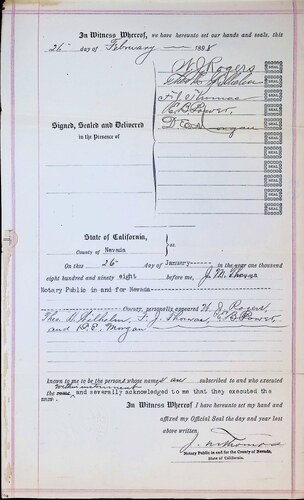 In Witness Whereof, we have hereunto set our hands and seals, this
26th day of February 1898
W J Rogers
SEAL
Theo W Wilhelm
SEAL
F. J. Thomas
SEAL
E. B. Power
SEAL
D E Morgan
SEAL
Signed, Sealed and Delivered
in the Presence of
SEAL
SEAL
SEAL
SEAL
SEAL
State of California,
County of Nevada
ss.
On this 26th day of January in the year one thousand
eight hundred and ninety eight before me, J. M. Thomas
Notary Public in and for Nevada
County, personally appeared W. J. Rogers
Theo W Wilhelm, F. J. Thomas, E B Power
and D. E. Morgan
known to me to be the persons whose names are subscribed to and who executed
the within instrument
same, and severally acknowledged to me that they executed the
same.
In Witness Whereof I have hereunto set my hand and
affixed my Official Seal the day and year last
above written.
J. M Thomas
Notary Public in and for the County of Nevada,
State of California.